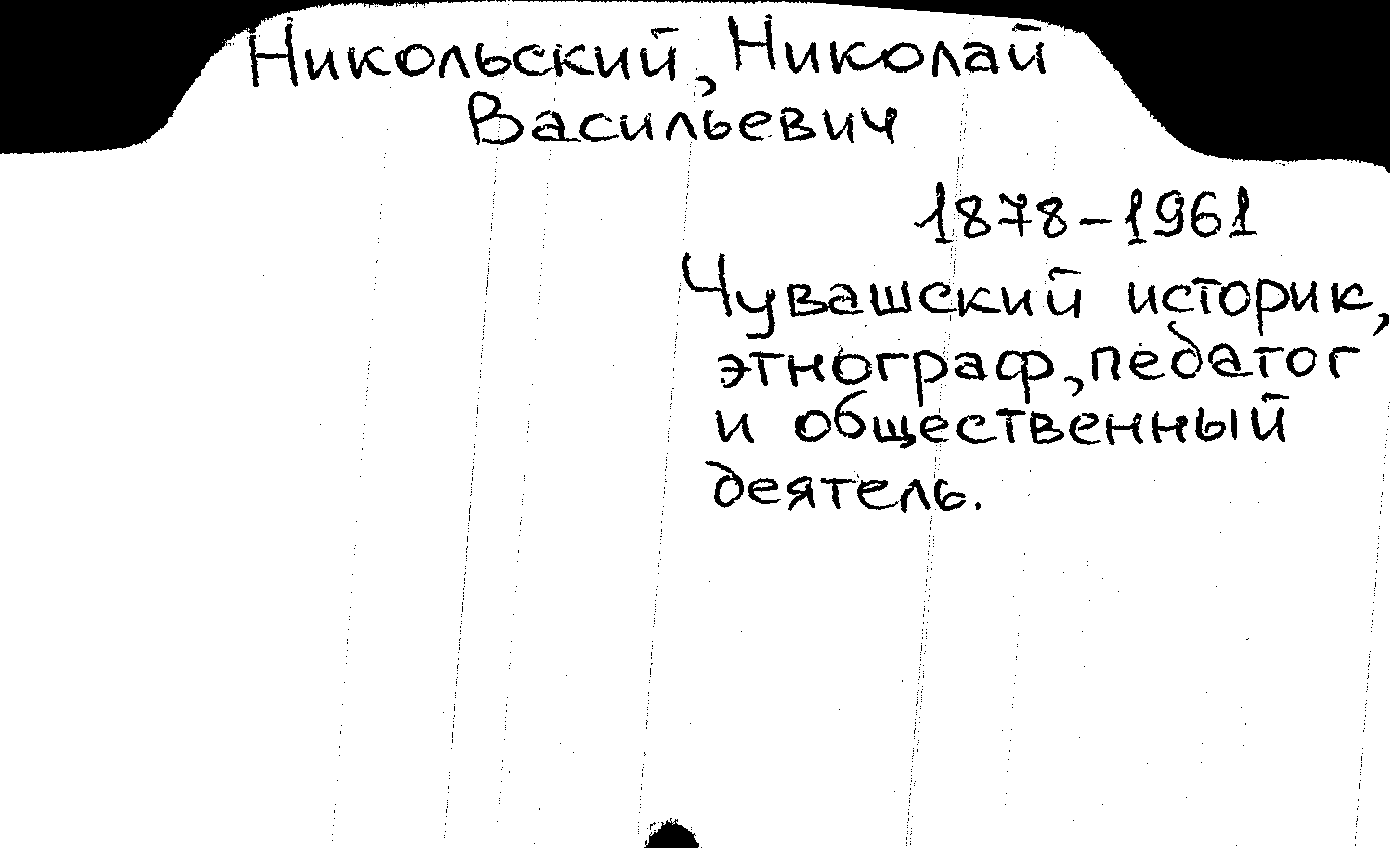 Никольский, Николай
Васильевич
1878-1961
Чувашский историк,
этнограф, педагог
и общественный
деятель.